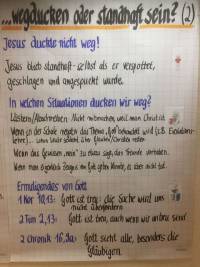 ...wegducken oder standhaft sein? (2)
Jesus duckte nicht weg!
Jesus blieb standhaft - selbst als er verspottet,
geschlagen und angespuckt wurde.
In welchen Situationen ducken wir weg?
Lästern/Abschreiben: Nicht mitmachen, weil man Christ ist.
Wenn in der Schule negativ das Thema „Gott behandelt wird (z.B. Evolutions-
lehre)... wenn Leute schlecht über Glauben/Christen reden
Wenn das Gewissen „nein" zu etwas sagt, dem Freunde vertrauen.
Wenn man eigentlich Zeugnis von Gott geben könnte, es aber nicht tut.
Ermutigendes von Gott
1 Kor 10,13: Gott ist treu: die Suche wird uns
nicht überfordern
2 Tim 2,13: Gott ist treu, auch wenn wir untreu sind
2 Chronik 16,9a: Gott sieht alle, besonders die
Gläubigen.